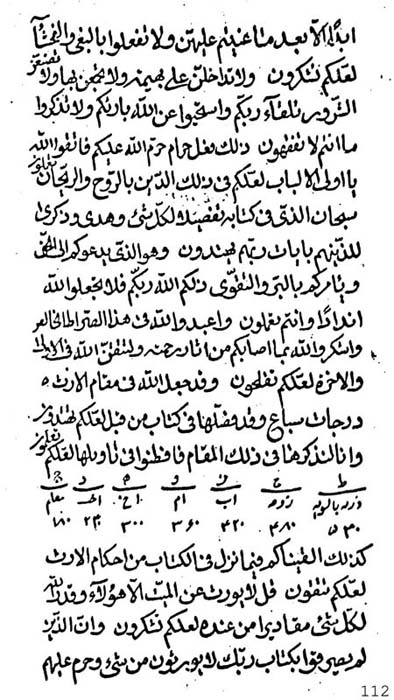 ابدا الا بعد ما غنيتم عليهن ولا تفعلوا بالبغى والفحشآ
لعلكم تشكرون ولا تداخلن على بهيمة ولا
التزوير تلقآء ربكم واستحيوا عن الله بارئكم ولا تذكروا
ما انتم لا تفقهون ذلك بفعل حرام حرم الله عليكم فاتقوا الله
يا اولى الالباب لعلكم فى ذلك الدين بالروح والريحان تفلحون
سبحان الذى فى كتابه تفصيلا لكل شئ وهدى وذكرى
للذينهم بايات ربهم يهتدون وهو الذى يدعوكم الى الحق
ويامركم بالبر والتقوى ذلكم الله ربكم فلا تجعلوا لله
اندادا وانتم تعلمون واعبدوا الله فى هذا الصراط الخالص
واشكروا الله بما اصابكم من اثار رحمته ولتتقن الله فى الاولى
والاخرة لعلكم تفلحون وقد جعل الله فى مقام الارث
درجات سباع وقد فصلها فى كتاب من قبل لعلكم تهتدون
وانا لنذكرها فى ذلك المقام فافطنوا فى تاويلها لعلكم تعلمون
ط ح ز و ه د ج
ذرية زوج اب ام اخ اخت معلم
٥٣٠ ٤٨٠ ٤٢٠ ٣٦٠ ٣٠٠ ٢٤٠ ١٨٠
كذلك القيناكم فيما نزل فى الكتاب من احكام الارث
لعلكم تتقون قل لا يورث عن الميت الا هؤلآء وقد لله
لكل شئ مقاديرا من عنده لعلكم تشكرون وان الذين
لم يصدقوا بكتاب ربك لا يورثون من شئ وحرم عليهم
112